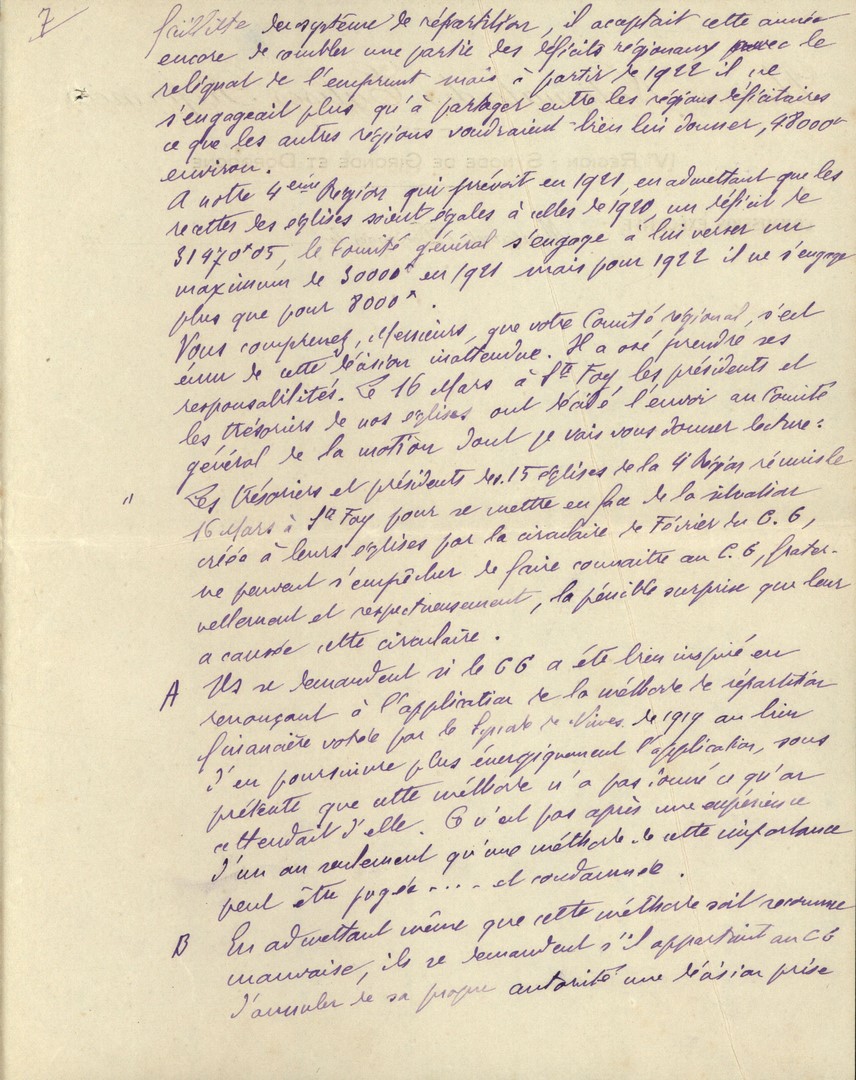 7
faillite du système de répartition, il aceptait cette année
encore de combler une partie des déficits régionaux avec le
reliquat de l'emprunt mais à partir de 1922 il ne
s'engageait plus qu'à partager entre les régions déficitaires
ce que les autres régions voudraient bien lui donner, 48000f
environ.
A notre 4eme Région qui prévoit en 1921, en admettant que les
recettes des églises soient égales à celles de 1920, un déficit de
31970f05, le Comité général s'engage à lui verser un
maximum de 30000f en 1921 mais pour 1922 il ne s'engage
plus que pour 8000f.
Vous comprenez, Messieurs, que votre Comité régional, s'est
ému de cette décision inattendue. Il a osé prendre ses
responsabilités. Le 16 Mars à Ste Foy les présidents et
les trésoriers de nos églises ont décidé l'envoi au Comité
général de la motion dont je vais vous donner lecture :
" Les trésoriers et présidents des 15 églises de la 4e Région réunis le
16 Mars à Ste Foy pour se mettre en face de la situation
créée à leurs églises par la circulaire de Février du C. G,
ne peuvent s'empêcher de faire connaitre au C. G, frater-
nellement et respectueusement, la pénible surprise que leur
a causée cette circulaire.
A Ils se demandent si le CG a été bien inspiré en
renonçant à l'application de la méthode de répartition
financière votée par le Synode de Nîmes de 1919 au lieu
d'en poursuivre plus énergiquement l'application, sous
prétexte que cette méthode n'a pas donné ce qu'on
attendait d'elle. C n'est pas après une expérience
d'un an seulement qu'une méthode de cette importance
peut être jugée .... et condamnée.
B En admettant même que cette méthode soit reconnue
mauvaise, ils se demandent s'il appartient au CG
d'annuler de sa propre autorité une décision prise